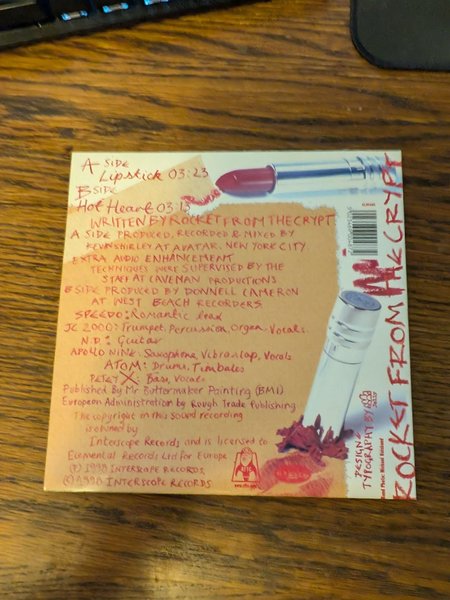 A SIDE
Lipstick 03:23
B SIDE
Hot Heart 03:13
WRITTEN BY ROCKET FROM THE CRYPT
A SIDE PRODUCED, RECORDED & MIXED BY
KEVIN SHIRLEY AT AVATAR. NEW YORK CITY
EXTRA AUDIO ENHANCEMENT
TECHNIQUES WERE SUPERVISED BY THE
STAFF AT CAVEMAN PRODUCTIONS.
B SIDE PRODUCED BY DONNELL CAMERON
AT WEST BEACH RECORDERS
SPEEDO: Romantic lead
JC 2000: Trumpet, Percussion, Organ, Vocals
N.D.: Guitar
APOLLO NINE: Saxophone, Vibraslap, Vocals
ATOM: Drums, Timbales
PETEY X: Bass, Vocals
Published By Mr Buttermaker Painting (BMI)
European Administration by Rough Trade Publishing
The copyright in this sound recording
is owned by
Interscope Records and is licensed to
Elemental Records Ltd for Europe
(P) 1998 INTERSCOPE RECORDS
© 1998 INTERSCOPE RECORDS
DESIGN &
TYPOGRAPHY BY
ROCKET FROM THE CRYPT